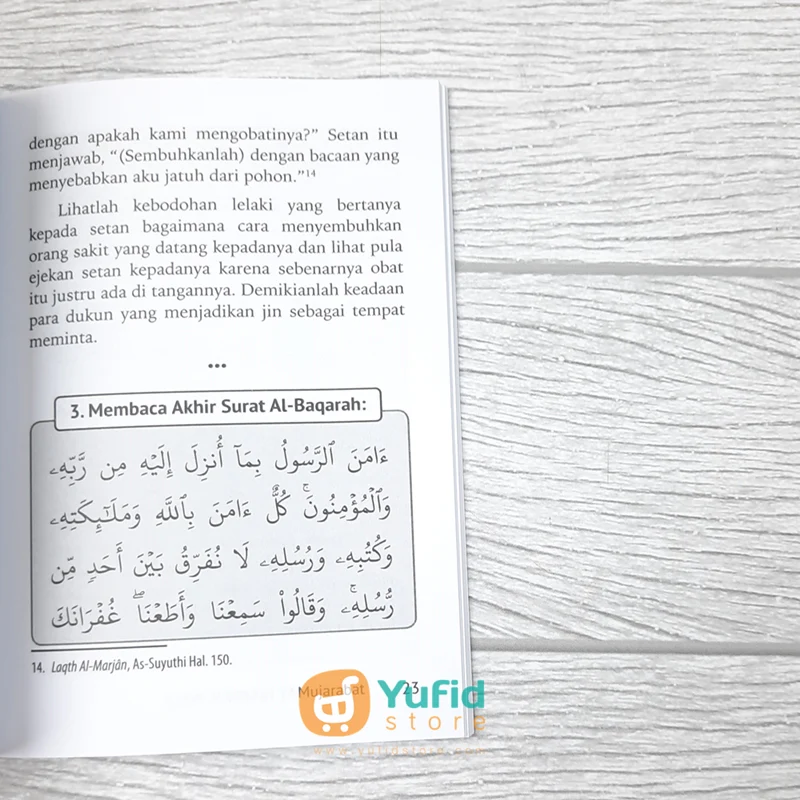 dengan apakah kami mengobatinya?" Setan itu
menjawab, "(Sembuhkanlah) dengan bacaan yang
menyebabkan aku jatuh dari pohon."¹⁴
Lihatlah kebodohan lelaki yang bertanya
kepada setan bagaimana cara menyembuhkan
orang sakit yang datang kepadanya dan lihat pula
ejekan setan kepadanya karena sebenarnya obat
itu justru ada di tangannya. Demikianlah keadaan
para dukun yang menjadikan jin sebagai tempat
meminta.
•••
3. Membaca Akhir Surat Al-Baqarah:
ءَامَنَ ٱلرَّسُولُ بِمَآ أُنزِلَ إِلَيْهِ مِن رَّبِّهِۦ
وَٱلْمُؤْمِنُونَ ۚ كُلٌّ ءَامَنَ بِٱللَّهِ وَمَلَٰٓئِكَتِهِۦ
وَكُتُبِهِۦ وَرُسُلِهِۦ لَا نُفَرِّقُ بَيْنَ أَحَدٍ مِّن
رُّسُلِهِۦ ۚ وَقَالُوا۟ سَمِعْنَا وَأَطَعْنَا ۖ غُفْرَانَكَ
14. Laqth Al-Marjân, As-Suyuthi Hal. 150.
Mujarabat 23
Yufid
store
www.yufidstore.com